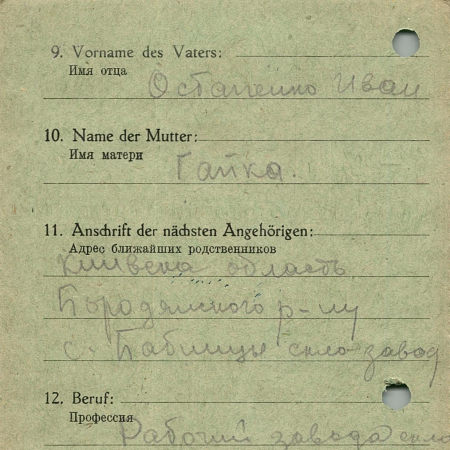 9. Vorname des Vaters:
Имя отца
Остапенко Иван
10. Name der Mutter:
Имя матери
Гапка.
11. Anschrift der nächsten Angehörigen:
Адрес ближайших родственников
Київска область
Бородямского р-ну
с. Бабинцы скло завод
12. Beruf:
Профессия
Рабочий завода скло